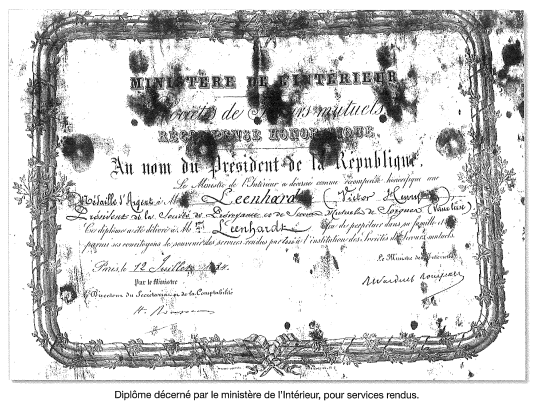 MINISTÈRE DE L'INTÉRIEUR
Société de Secours mutuels
RÉCOMPENSE HONORIFIQUE.
Au nom du Président de la République,
Le Ministre de l'Intérieur a décerné comme récompense honorifique une
Médaille d'Argent à M. Leenhardt (Victor Henry)
Président de la Société de Prévoyance et de Secours Mutuels de Sorgues (Vaucluse)
Ce diplôme a été délivré à Mr Leenhardt afin de perpétuer dans sa famille et
parmi ses concitoyens le souvenir des services rendus par lui à l'institution des Sociétés de Secours mutuels.
Paris, le 12 Juillet
Le Ministre de l'Intérieur
Par le Ministre
Le Directeur du Secrétariat et de la Comptabilité
Diplôme décerné par le ministère de l'Intérieur, pour services rendus.